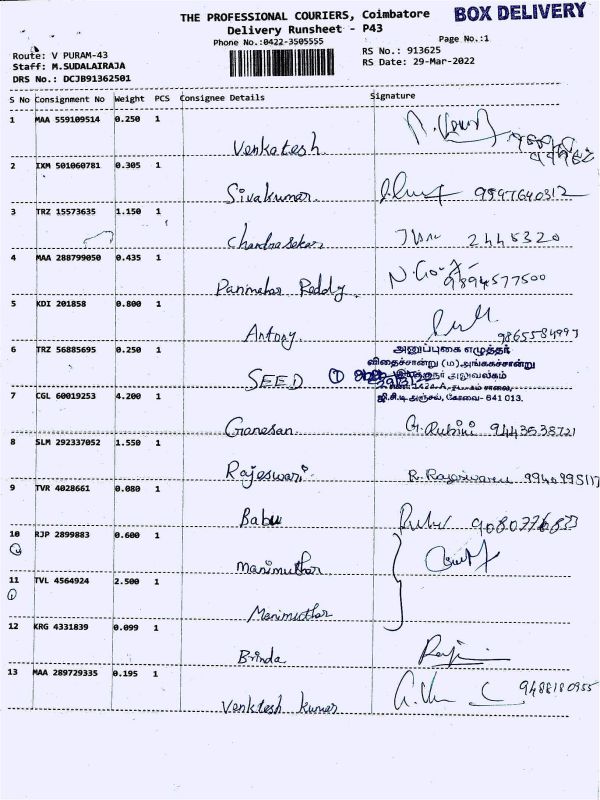 THE PROFESSIONAL COURIERS, Coimbatore BOX DELIVERY
Delivery Runsheet - P43
Phone No.:0422-3505555 Page No.:1
Route: V PURAM-43 RS No.: 913625
Staff: M.SUDALAIRAJA RS Date: 29-Mar-2022
DRS No.: DCJB91362501
S No Consignment No Weight PCS Consignee Details Signature
1 MAA 559109514 0.250 1
Venkatesh
2 IXM 501060781 0.305 1
Sivakumar 9597640312
3 TRZ 15573635 1.150 1
Chandrasekar 2445320
4 MAA 288799050 0.435 1
Reddy 9894577500
5 KDI 201858 0.800 1
Antony 9865584997
6 TRZ 56885695 0.250 1
அனுப்புகை எழுத்தர்
விதைச்சான்று (ம) அங்ககச்சான்று
SEED 1 அலுவலகம்
7 CGL 60019253 4.200 1
ஜி.சி.டி அஞ்சல், கோவை- 641 013.
Ganesan
8 SLM 292337052 1.550 1
Rajeswari 9940998117
9 TVR 4028661 0.080 1
Babu
10 RJP 2899883 0.600 1
Manimuthar
11 TVL 4564924 2.500 1
Manimuthar
12 KRG 4331839 0.099 1
Brinda
13 MAA 289729335 0.195 1
Venktesh kumar 9488180955